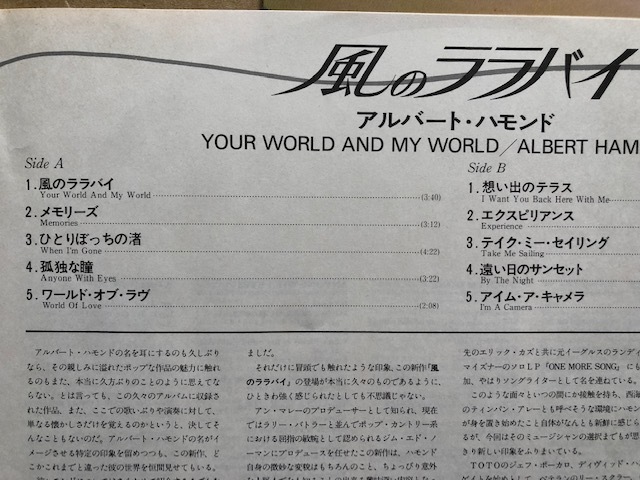 風のララバイ
アルバート・ハモンド
YOUR WORLD AND MY WORLD/ALBERT HAM
Side A
1.風のララバイ
Your World And My World (3:40)
2.メモリーズ
Memories (3:12)
3.ひとりぼっちの渚
When I'm Gone (4:22)
4.孤独な瞳
Anyone With Eyes (3:22)
5.ワールド・オブ・ラヴ
World Of Love (2:08)
Side B
1.想い出のテラス
I Want You Back Here With Me
2.エクスピリアンス
Experience
3.テイク・ミー・セイリング
Take Me Sailing
4.遠い日のサンセット
By The Night
5.アイム・ア・キャメラ
I'm A Camera
アルバート・ハモンドの名を耳にするのも久しぶり
なら、その親しみに溢れたポップな作品の魅力に触れ
るのもまた、本当に久方ぶりのことのように思えてな
らない。とは言っても、この久々のアルバムに収録さ
れた作品、また、ここでの歌いぶりや演奏に対して、
単なる懐かしさだけを覚えるのかというと、決してそ
んなこともないのだ。アルバート・ハモンドの名がイ
メージさせる特定の印象を留めつつも、この新作、ど
こかこれまでと違った彼の世界を垣間見せてもいる。
ました。
それだけに冒頭でも触れたような印象、この新作「風
のララバイ」の登場が本当に久々のものであるように、
ひときわ強く感じられたとしても不思議じゃない。
アン・マレーのプロデューサーとして知られ、現在
ではラリー・バトラーと並んでポップ・カントリー系
における屈指の敏腕として認められるジム・エド・ノ
ーマンにプロデュースを任せたこの新作は、ハモンド
自身の微妙な変貌はもちろんのこと、ちょっぴり意外
先のエリック・カズと共に元イーグルスのランディ
マイズナーのソロLP「ONE MORE SONG」にも
加、やはりソングライターとして名を連ねている。
このような面々といつの間にか接触を持ち、西海
のティンパン・アレーとも呼べそうな環境にハモン
が身を置き始めたこと自体がなんとも新鮮に感じ
るが、今回はそのミュージシャンの選択までもが思
きり新しい印象をふりまいている。
TOTOのジェフ・ポーカロ、ディヴィッド・ハ